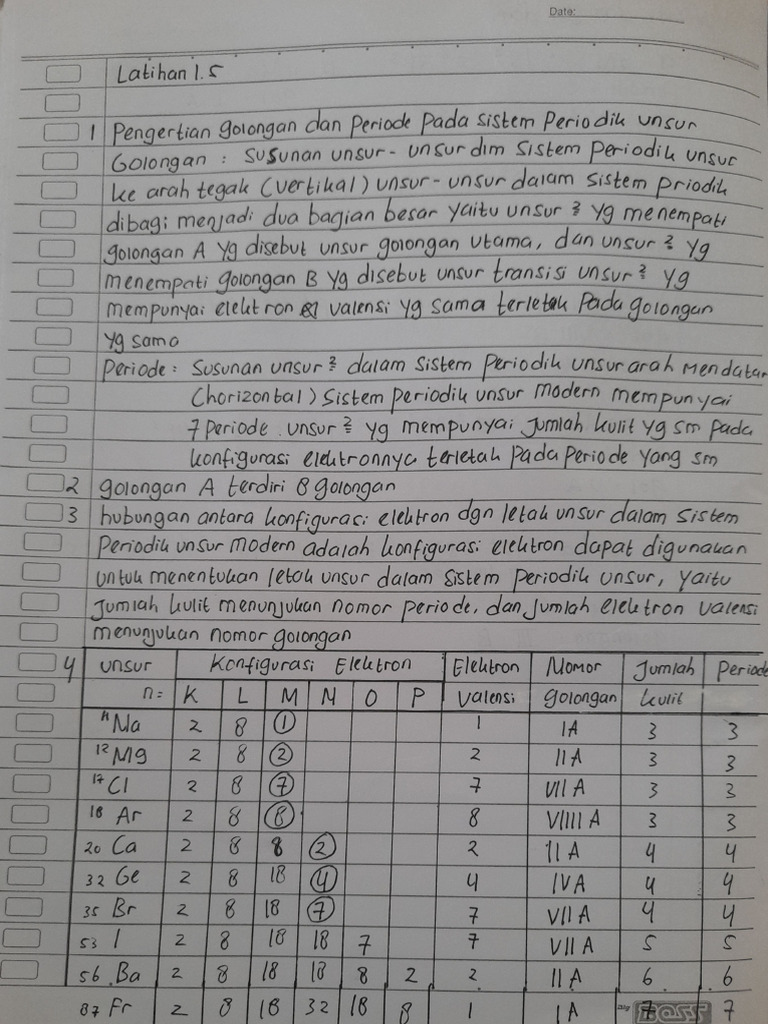 Date:
Latihan 1.5
1 Pengertian golongan dan Periode Pada sistem Periodik unsur
Golongan : Susunan unsur-unsur dlm Sistem Periodik unsur
ke arah tegak (vertikal) unsur-unsur dalam sistem priodik
dibagi menjadi dua bagian besar yaitu unsur ² yg menempati
golongan A yg disebut unsur golongan utama, dan unsur ² yg
menempati golongan B yg disebut unsur transisi unsur ² yg
mempunyai elektron valensi yg sama terletak Pada golongan
yg sama
Periode : Susunan unsur ² dalam Sistem Periodik unsur arah mendatar
(horizontal) Sistem periodik unsur modern mempunyai
7 Periode. unsur ² yg mempunyai jumlah kulit yg sm pada
konfigurasi elektronnya terletak Pada Periode yang sm
2 golongan A terdiri 8 golongan
3 hubungan antara konfigurasi elektron dgn letak unsur dalam Sistem
Periodik unsur modern adalah konfigurasi elektron dapat digunakan
untuk menentukan letak unsur dalam Sistem Periodik unsur, yaitu
jumlah kulit menunjukan nomor periode, dan jumlah elektron valensi
menunjukan nomor golongan
4 unsur Konfigurasi Elektron Elektron Nomor Jumlah Periode
n: K L M N O P Valensi golongan kulit
11 Na 2 8 1 1 IA 3 3
12 Mg 2 8 2 2 IIA 3 3
17 Cl 2 8 7 7 VIIA 3 3
18 Ar 2 8 8 8 VIIIIA 3 3
20 Ca 2 8 8 2 2 IIA 4 4
32 Ge 2 8 18 4 4 IVA 4 4
35 Br 2 8 18 7 7 VIIA 4 4
53 I 2 8 18 18 7 7 VIIA 5 5
56 Ba 2 8 18 18 8 2 2 IIA 6 6
87 Fr 2 8 18 32 18 8 1 IA 7 7
Boss